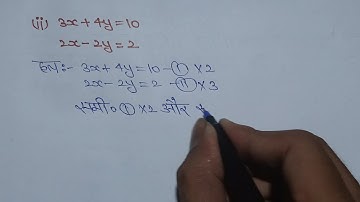 (ii) 3x+4y=10
2x-2y=2
हल:- 3x+4y=10 -Ⓘ ×2
2x-2y=2 -Ⓘⓘ ×3
समी० Ⓘ ×2 और